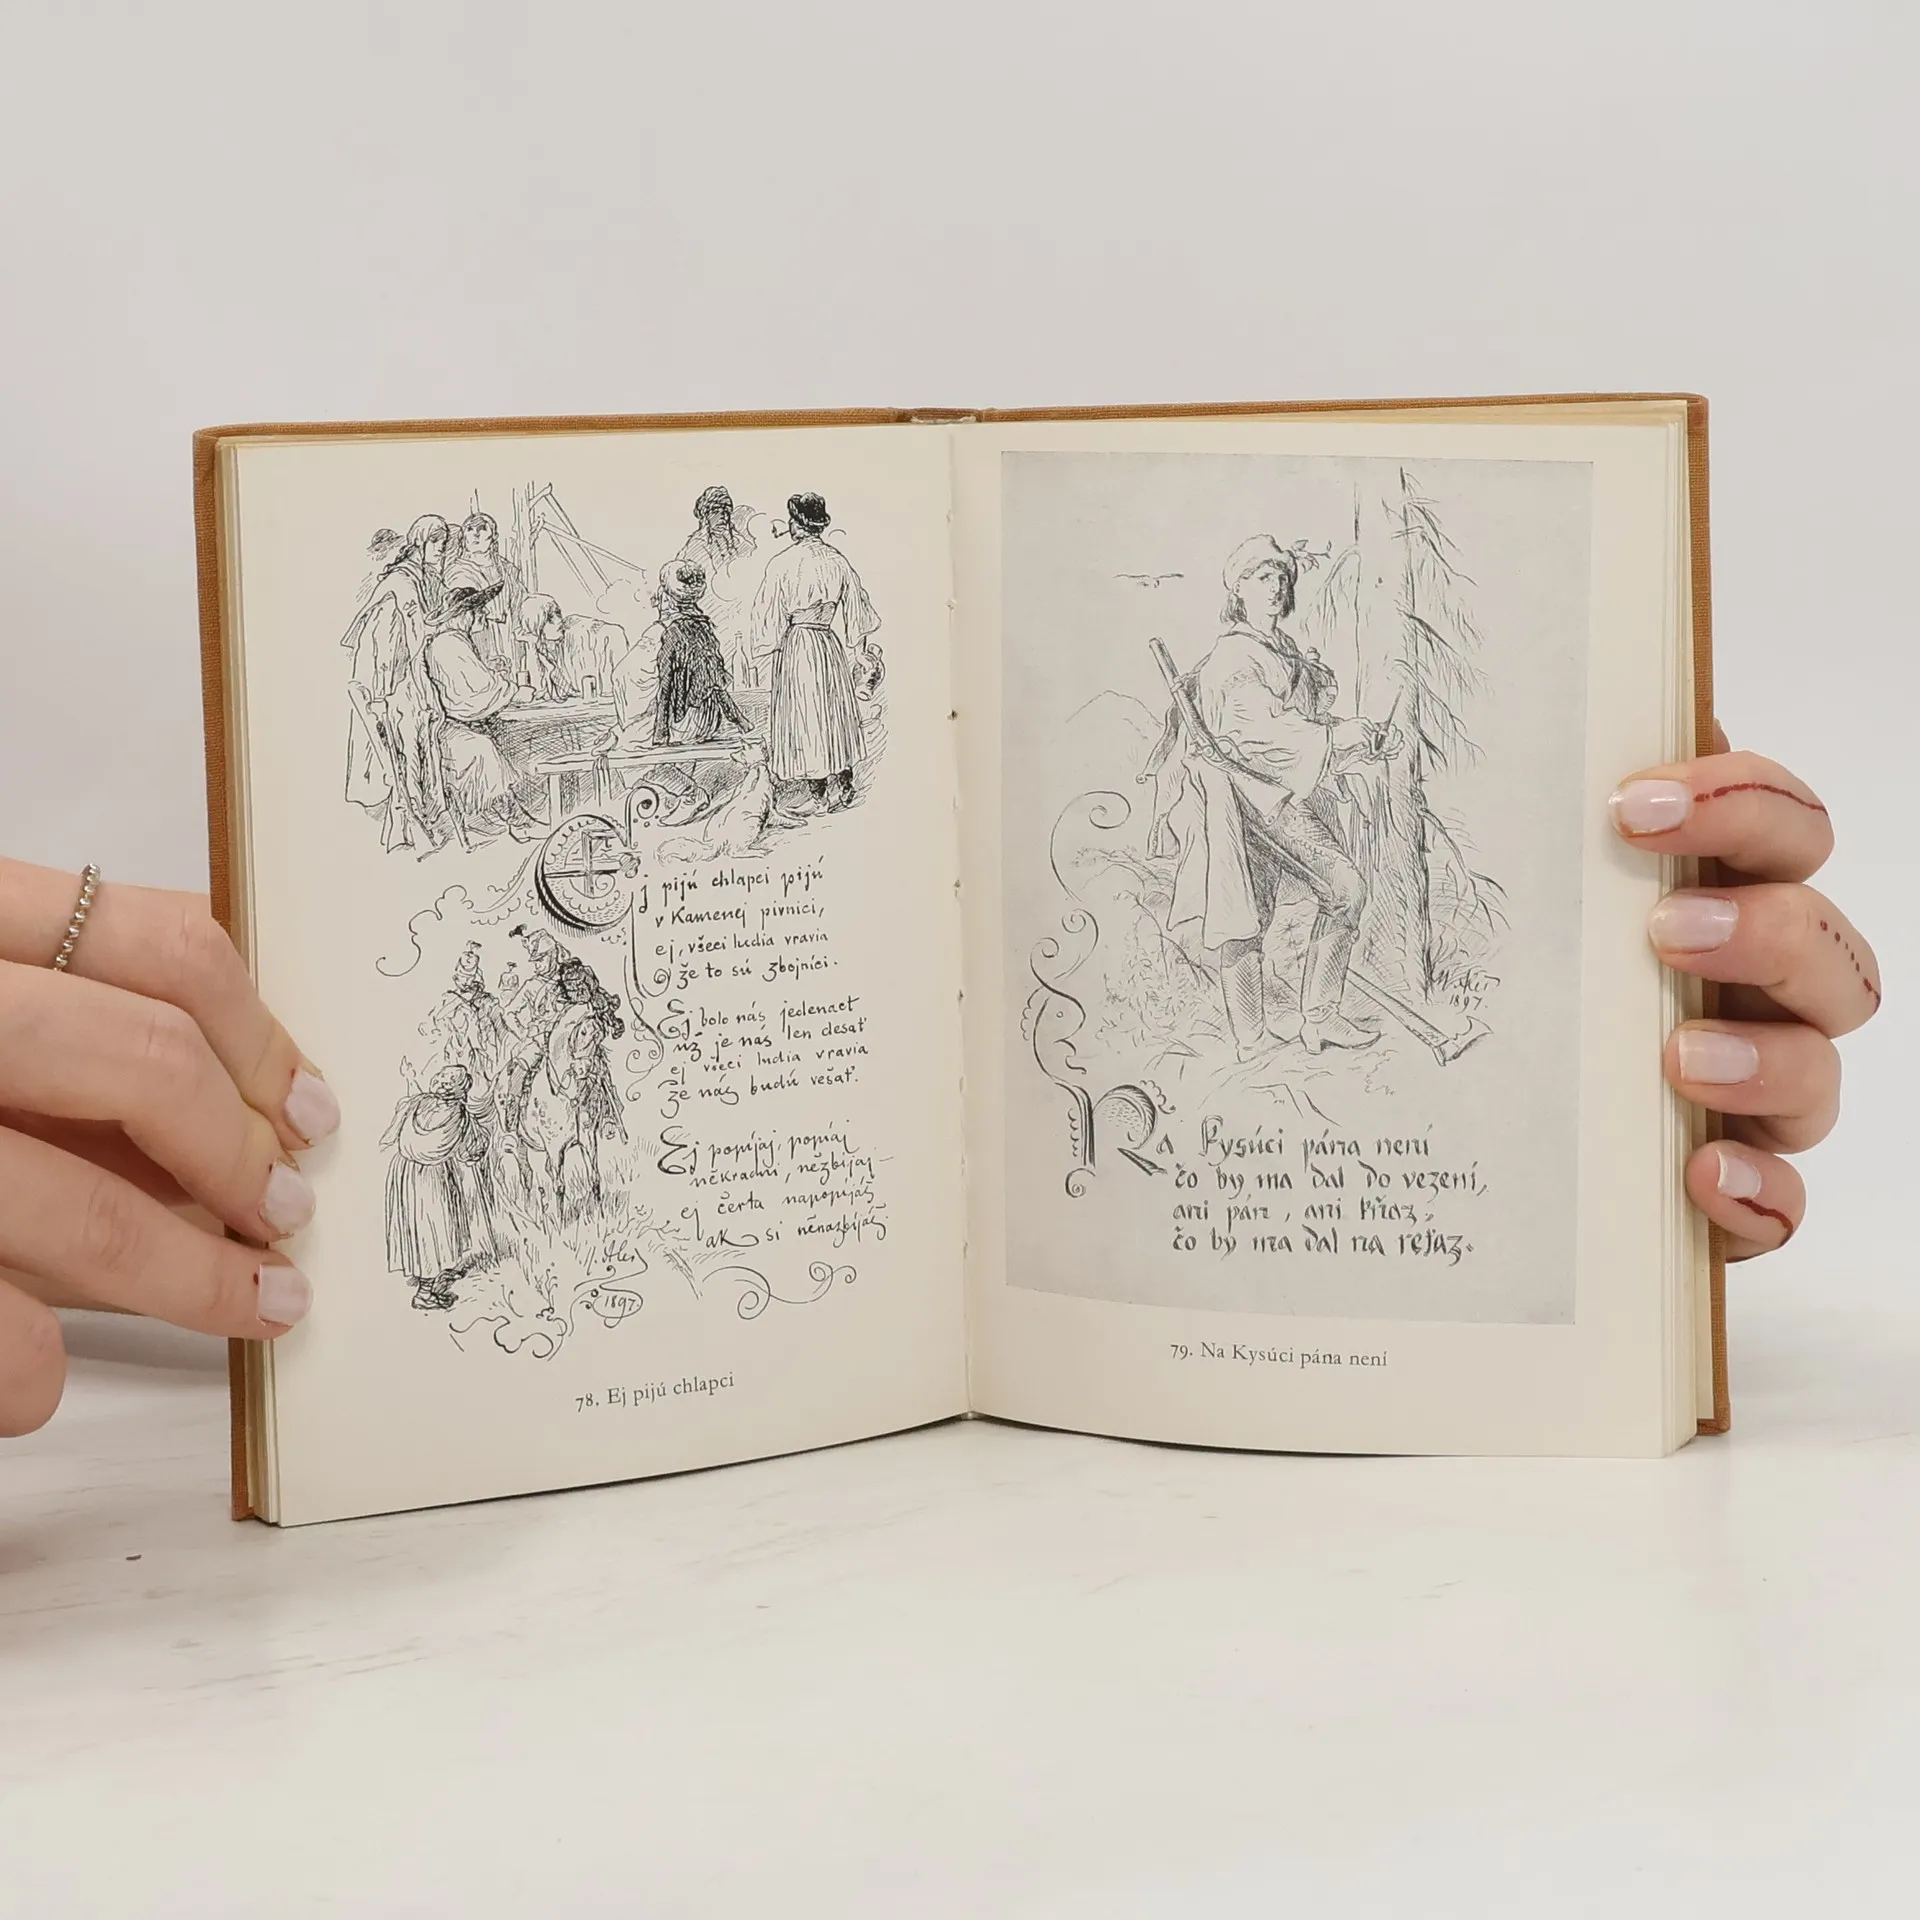 Ej pijú chlapci pijú
v Kamenej pivnici,
ej, všeci ludia vravia
že to sú zbojníci.
Ej bolo nás jedenact
už je nás len desať
ej všeci ludia vravia
že nás budú vešať.
Ej popíjaj, popíjaj
někradni, nězbíjaj –
ej čerta napopíjáš
ak si něnazbíjáš.
M. Aleš
1897.
78. Ej pijú chlapci
M. Aleš
1897.
Na Kysúci pána není
čo by ma dal do vezení,
ani pán, ani kňaz,
čo by ma dal na reťaz.
79. Na Kysúci pána není